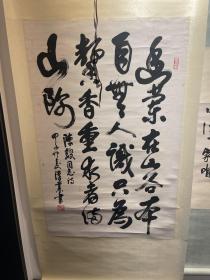 幽蘭在山谷本
自無人識只為
馨香重求者遍
山隅
陳毅同志詩
甲子
書